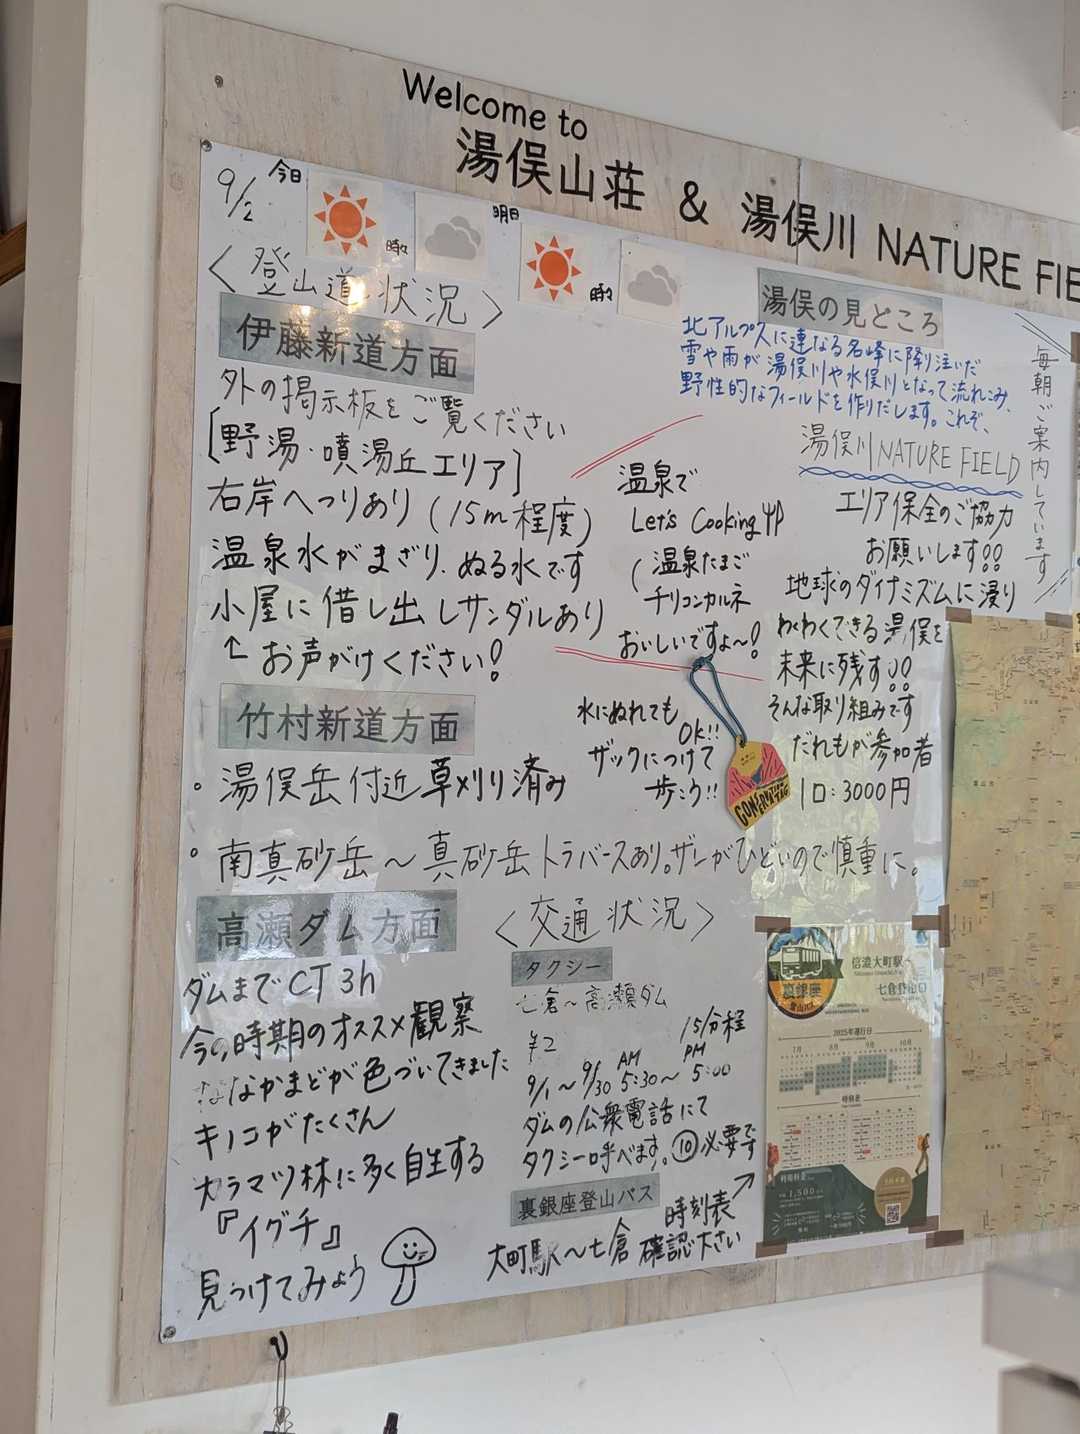 Welcome to
湯俣山荘 & 湯俣川 NATURE FIE
9/2 今日 時々 明日 時々
〈登山道状況〉
伊藤新道方面
外の掲示板をご覧ください
[野湯・噴湯丘エリア]
右岸へつりあり (15m程度)
温泉水がまざり、ぬる水です
小屋に借し出しサンダルあり
↑お声がけください!
竹村新道方面
・湯俣岳付近草刈り済み
・南真砂岳〜真砂岳トラバースあり。ザレがひどいので慎重に。
高瀬ダム方面
ダムまでCT3h
今の時期のオススメ観察
ななかまどが色づいてきました
キノコがたくさん
カラマツ林に多く自生する
『イグチ』
見つけてみよう
湯俣の見どころ
北アルプスに連なる名峰に降り注いだ
雪や雨が湯俣川や水俣川となって流れこみ、
野性的なフィールドを作りだします。これぞ、
湯俣川NATURE FIELD
毎朝ご案内しています
温泉で
Let's Cooking
(温泉たまご
チリコンカルネ
おいしいですよ〜!
エリア保全のご協力
お願いします!!
地球のダイナミズムに浸り
わくわくできる湯俣を
未来に残す!!
そんな取り組みです
だれもが参加者
1口:3000円
水にぬれても
OK!!
ザックにつけて
歩こう!!
CONSERVATION TAG
〈交通状況〉
タクシー
七倉〜高瀬ダム
¥2 15分程
9/1〜9/30 AM 5:30〜 PM 5:00
ダムの公衆電話にて
タクシー呼べます。⑩必要です
裏銀座登山バス
大町駅〜七倉
時刻表↗
確認下さい
裏銀座
登山バス
信濃大町駅
七倉登山口
2025年運行日
7月 8月 9月 10月
時刻表
1,500